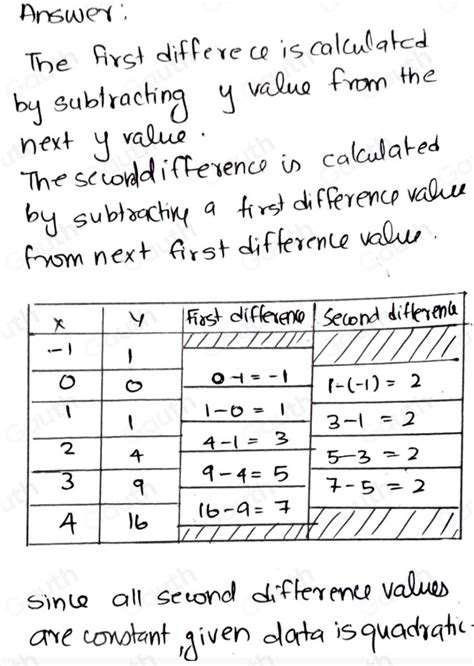 Answer:
The first differece is calculated
by subtracting y value from the
next y value.
The second difference is calculated
by subtracting a first difference value
from next first difference value.
x y First difference Second difference
-1 1
0 0 0-1=-1 1-(-1) = 2
1 1 1-0 = 1 3-1 = 2
2 4 4-1 = 3 5-3 = 2
3 9 9-4=5 7-5 = 2
4 16 16-9=7
since all second difference values
are constant, given data is quadratic.